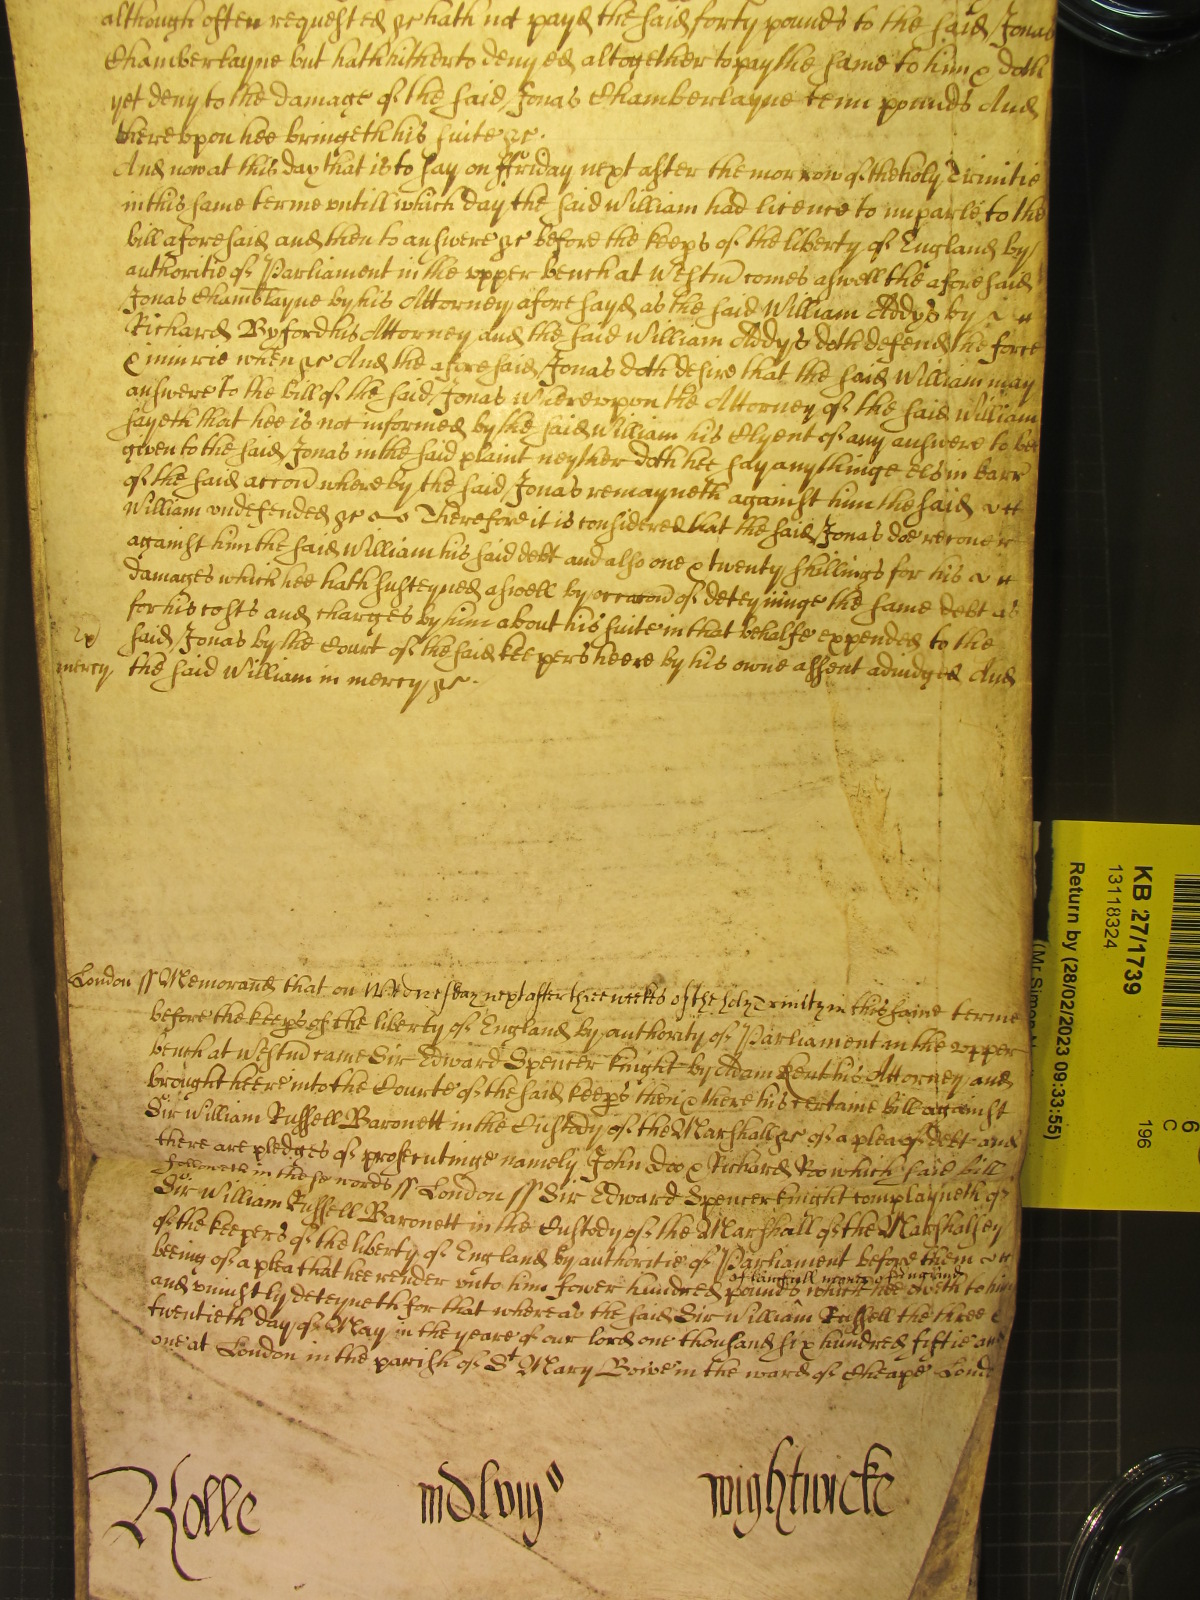 although often requested &c hath not payd the said forty pounds to the said Jonas
Chamberlayne but hath hitherto denyed altogether to pay the same to him & doth
yet deny to the damage of the said Jonas Chamberlayne tenn pounds And
thereupon hee bringeth his suite &c.
And now at this day that is to say on ffriday next after the morrow of the holy Trinitie
in this same terme untill which day the said William had licence to imparle to the
bill aforesaid and then to answere &c before the keeps of the liberty of England by
authoritie of Parliament in the upper bench at Westm comes aswell the aforesaid
Jonas Chamblayne by his Attorney aforesayd as the said William Addys by
Richard Byford his Attorney and the said William Addys doth defend the force
& iniurie when &c And the aforesaid Jonas doth desire that the said William may
answere to the bill of the said Jonas Whereupon the Attorney of the said William
sayeth that hee is not informed by the said William his Clyent of any answere to be
given to the said Jonas in the said plaint neyther doth hee say any thinge els in barr
of the said accon whereby the said Jonas remayneth against him the said
William undefended &c Therefore it is considered that the said Jonas doe recover
against him the said William his said debt and also one & twenty shillings for his
damages which hee hath susteyned aswell by occacon of deteyninge the same debt as
for his costs and charges by him about his suite in that behalfe expended to the
said Jonas by the Court of the said keepers heere by his owne assent adiudged And
mercy the said William in mercy &c.
London ss Memorand that on Wednesday next after three weekes of the holy Trinity in this same terme
before the keeps of the liberty of England by authority of Parliament in the upper
bench at Westm came Sir Edward Spencer knight by Adam Kent his Attorney and
brought heere into the Courte of the said keeps then & there his certaine bill against
Sir William Russell Baronett in the Custody of the Marshall &c of a plea of debt and
there are pledges of prosecutinge namely John Doo & Richard Roo which said bill
followeth in these words ss London ss Sir Edward Spencer knight complayneth of
Sir William Russell Baronett in the Custody of the Marshall of the Marshalsey
of the keepers of the liberty of England by authoritie of Parliament before them
beeing of a plea that hee render unto him fower hundred pounds of lawfull money of England which hee oweth to him
and uniustly deteyneth for that whereas the said Sir William Russell the three &
twentieth day of May in the yeare of our lord one thousand six hundred fiftie and
one at London in the parish of St Mary Bowe in the ward of Cheape Lond
Rolle mdlviijo wightwicke
KB 27/1739
13118324
Return by (28/02/2023 09:33:55)
6
C
196